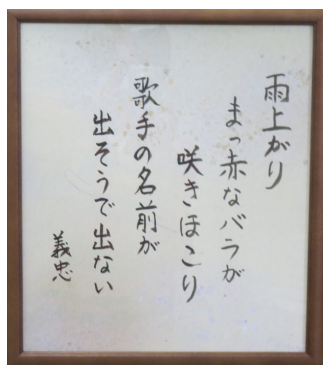 雨上がり
まっ赤なバラが
咲きほこり
歌手の名前が
出そうで出ない
義忠